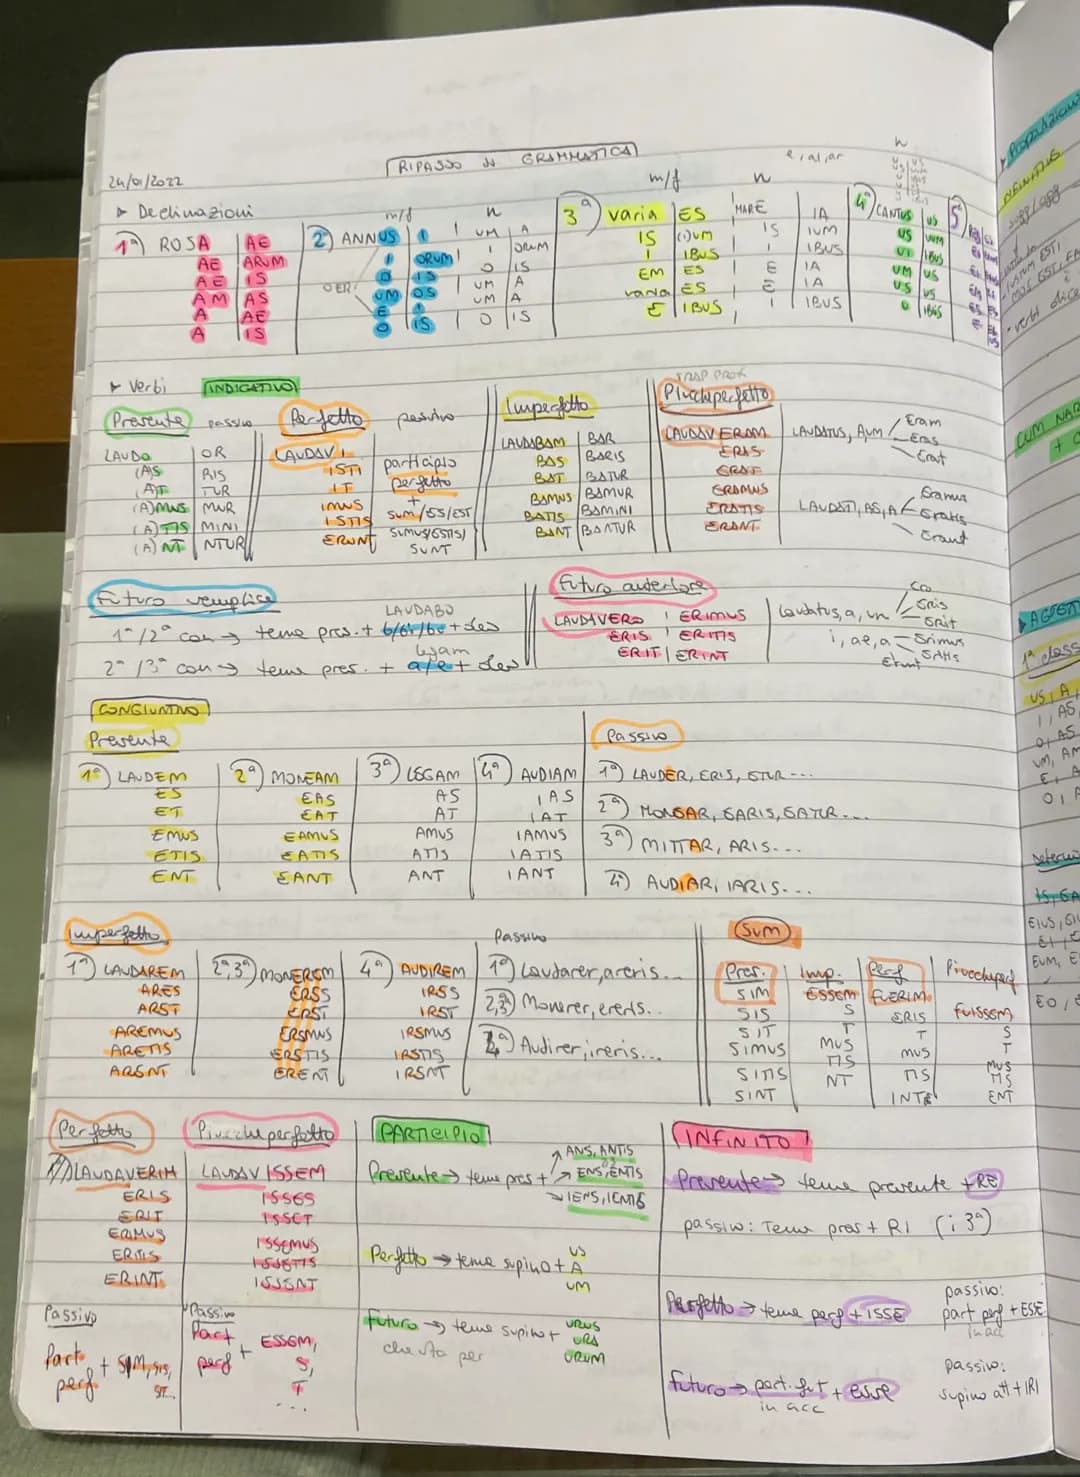 RIPASSO di GRAMMATICA
24/01/2022
Declinazioni
1ª) ROSA AE
AE ARUM
AE IS
AM AS
A AE
A IS
m/f n
2ª) ANNUS I | UM A
I ORUM | I ORUM
O IS | O IS
O ER UM OS | UM A
E I | UM A
O IS | O IS
m/f n e, al, ar
3ª) varia ES | MARE IA
IS (i)UM | IS IUM
I IBUS | I IBUS
EM ES | E IA
varia ES | E IA
E IBUS | I IBUS
n
4ª) CANTUS US
US UUM
UI IBUS
UM US
US US
U IBUS
5ª)
Verbi INDICATIVO
Presente passivo
LAUDO OR
(A)S RIS
(A)T TUR
(A)MUS MUR
(A)TIS MINI
(A)NT NTUR
Perfetto passivo
LAUDAVI
ISTI participio
IT perfetto
IMUS +
ISTIS sum/ES/EST
ERUNT SUMUS/ESTIS/
SUNT
Imperfetto
LAUDABAM BAR
BAS BARIS
BAT BATUR
BAMUS BAMUR
BATIS BAMINI
BANT BANTUR
TRAP. PROX
Piuccheperfetto
LAUDAVERAM LAUDATUS, A, UM Eram
ERAS Eras
ERAT Erat
ERAMUS Eramus
ERATIS LAUDATI, AE, A Eratis
ERANT Erant
Futuro semplice
LAUDABO
1ª/2ª con → tema pres. + b/bi/bu + des
legam
2ª/3ª con → tema pres. + a/e + des
Futuro anteriore
LAUDAVERO ERIMUS
ERIS ERITIS
ERIT ERINT
laudatus, a, um ero
Eris
Erit
i, ae, a Erimus
Eritis
Erunt
CONGIUNTIVO
Presente
1ª) LAUDEM
ES
ET
EMUS
ETIS
ENT
2ª) MONEAM
EAS
EAT
EAMUS
EATIS
EANT
3ª) LEGAM
AS
AT
AMUS
ATIS
ANT
4ª) AUDIAM
IAS
IAT
IAMUS
IATIS
IANT
Passivo
1ª) LAUDER, ERIS, ETUR...
2ª) MONEAR, EARIS, EATUR...
3ª) MITTAR, ARIS...
4ª) AUDIAR, IARIS...
Imperfetto
1ª) LAUDAREM
ARES
ARET
AREMUS
ARETIS
ARENT
2ª,3ª) MONEREM
ERES
ERET
EREMUS
ERETIS
ERENT
4ª) AUDIREM
IRES
IRET
IREMUS
IRETIS
IRENT
Passivo
1ª) Laudarer, areris...
2ª,3ª) Monerer, ereris...
4ª) Audirer, ireris...
SUM
Pres.
SIM
SIS
SIT
SIMUS
SITIS
SINT
Imp.
ESSEM
S
T
MUS
TIS
NT
Perf
FUERIM
ERIS
T
MUS
TIS
INT
Piuccheperf
FUISSEM
S
T
MUS
TIS
ENT
Perfetto
LAUDAVERIM
ERIS
ERIT
ERIMUS
ERITIS
ERINT
Passivo
Part. perf + SIM, SIS, SIT...
Piuccheperfetto
LAUDAVISSEM
ISSES
ISSET
ISSEMUS
ISSETIS
ISSENT
Passivo
Part perf + ESSEM,
S,
T
...
PARTICIPIO
Presente → tema pres + ANS, ANTIS
ENS, ENTIS
IENS, IENTIS
Perfetto → tema supino + US
A
UM
Futuro → tema supino + URUS
URA
URUM
che sta per
INFINITO
Presente → tema presente + RE
passivo: Tema pres + RI (i 3ª)
Perfetto → tema perf + ISSE
passivo:
part perf + ESSE
in acc
Futuro → part. fut + esse
in acc
passivo:
supino att + IRI
CUM NAR
1ª class
US, A,
EIUS,